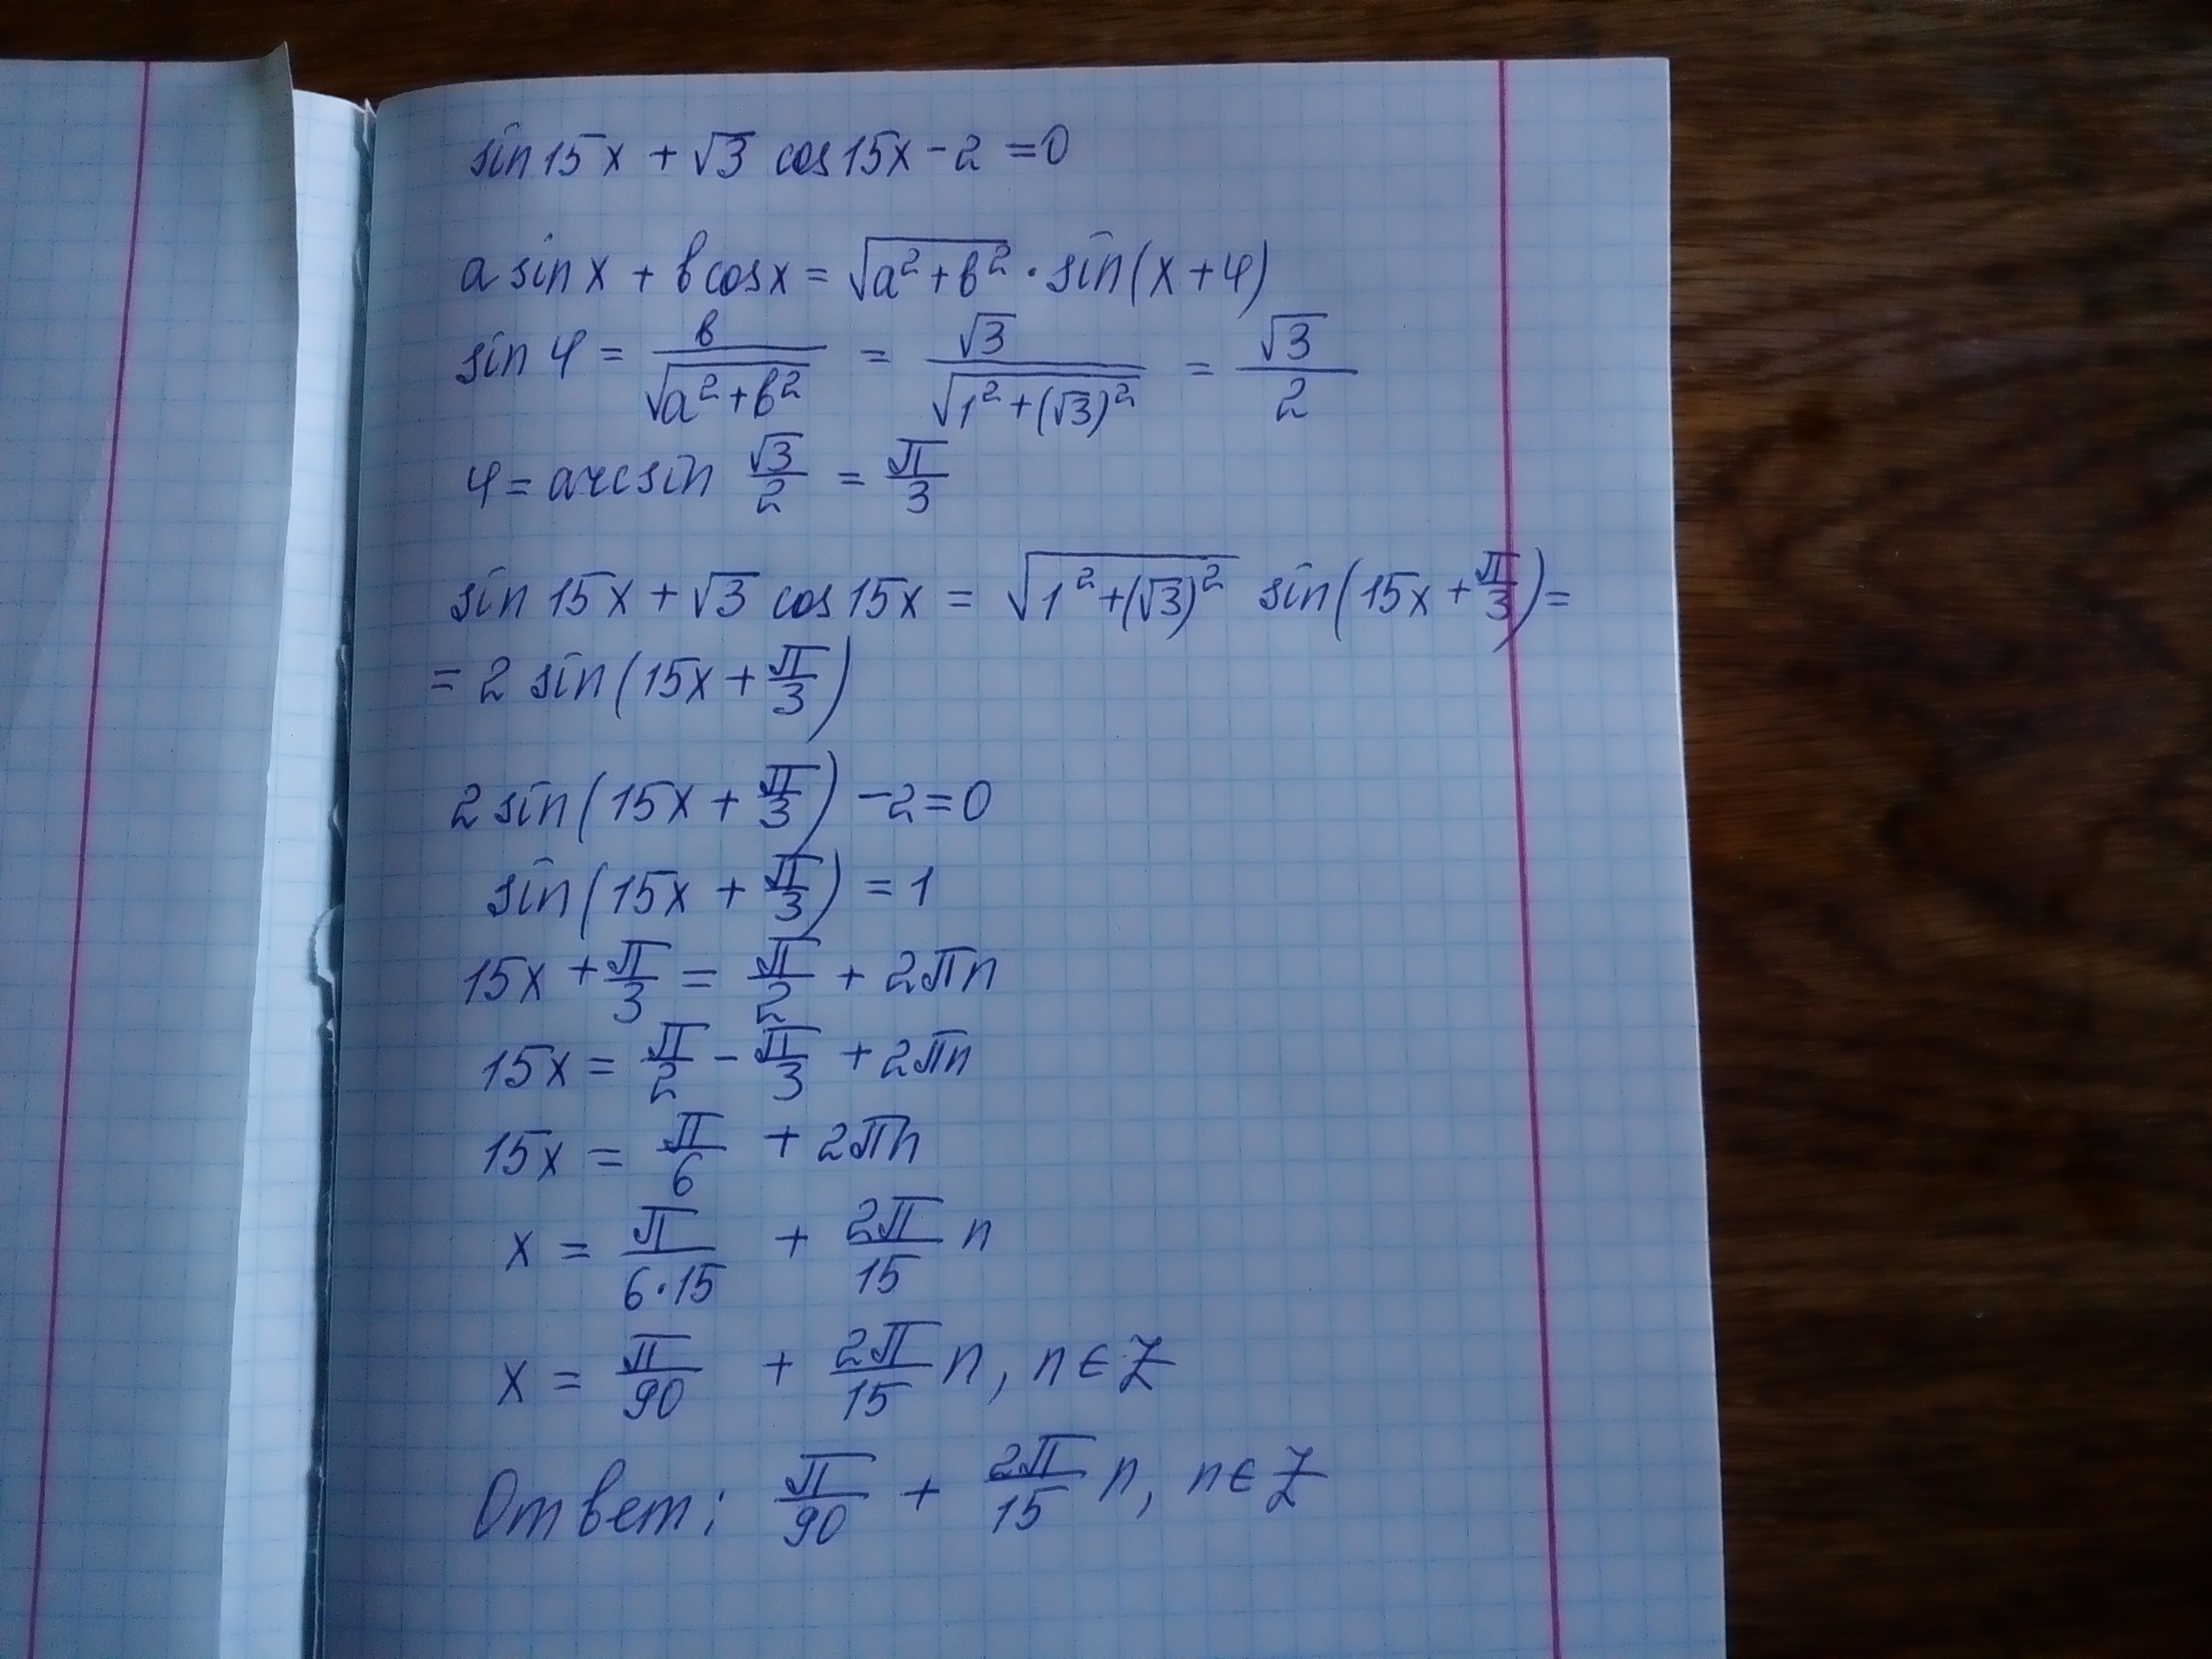 sin 15x + √3 cos 15x - 2 = 0
a sin x + b cos x = √(a² + b²) · sin(x + φ)
sin φ = b/√(a² + b²) = √3/√(1² + (√3)²) = √3/2
φ = arcsin √3/2 = π/3
sin 15x + √3 cos 15x = √(1² + (√3)²) sin(15x + π/3) =
= 2 sin(15x + π/3)
2 sin(15x + π/3) - 2 = 0
sin(15x + π/3) = 1
15x + π/3 = π/2 + 2πn
15x = π/2 - π/3 + 2πn
15x = π/6 + 2πn
x = π/(6·15) + 2π/15 n
x = π/90 + 2π/15 n, n ∈ Z
Ответ: π/90 + 2π/15 n, n ∈ Z